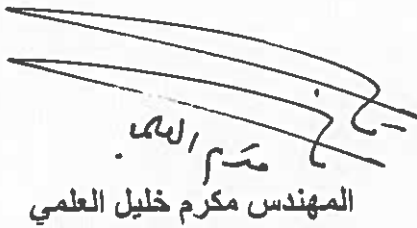 مكرم العلمي
المهندس مكرم خليل العلمي